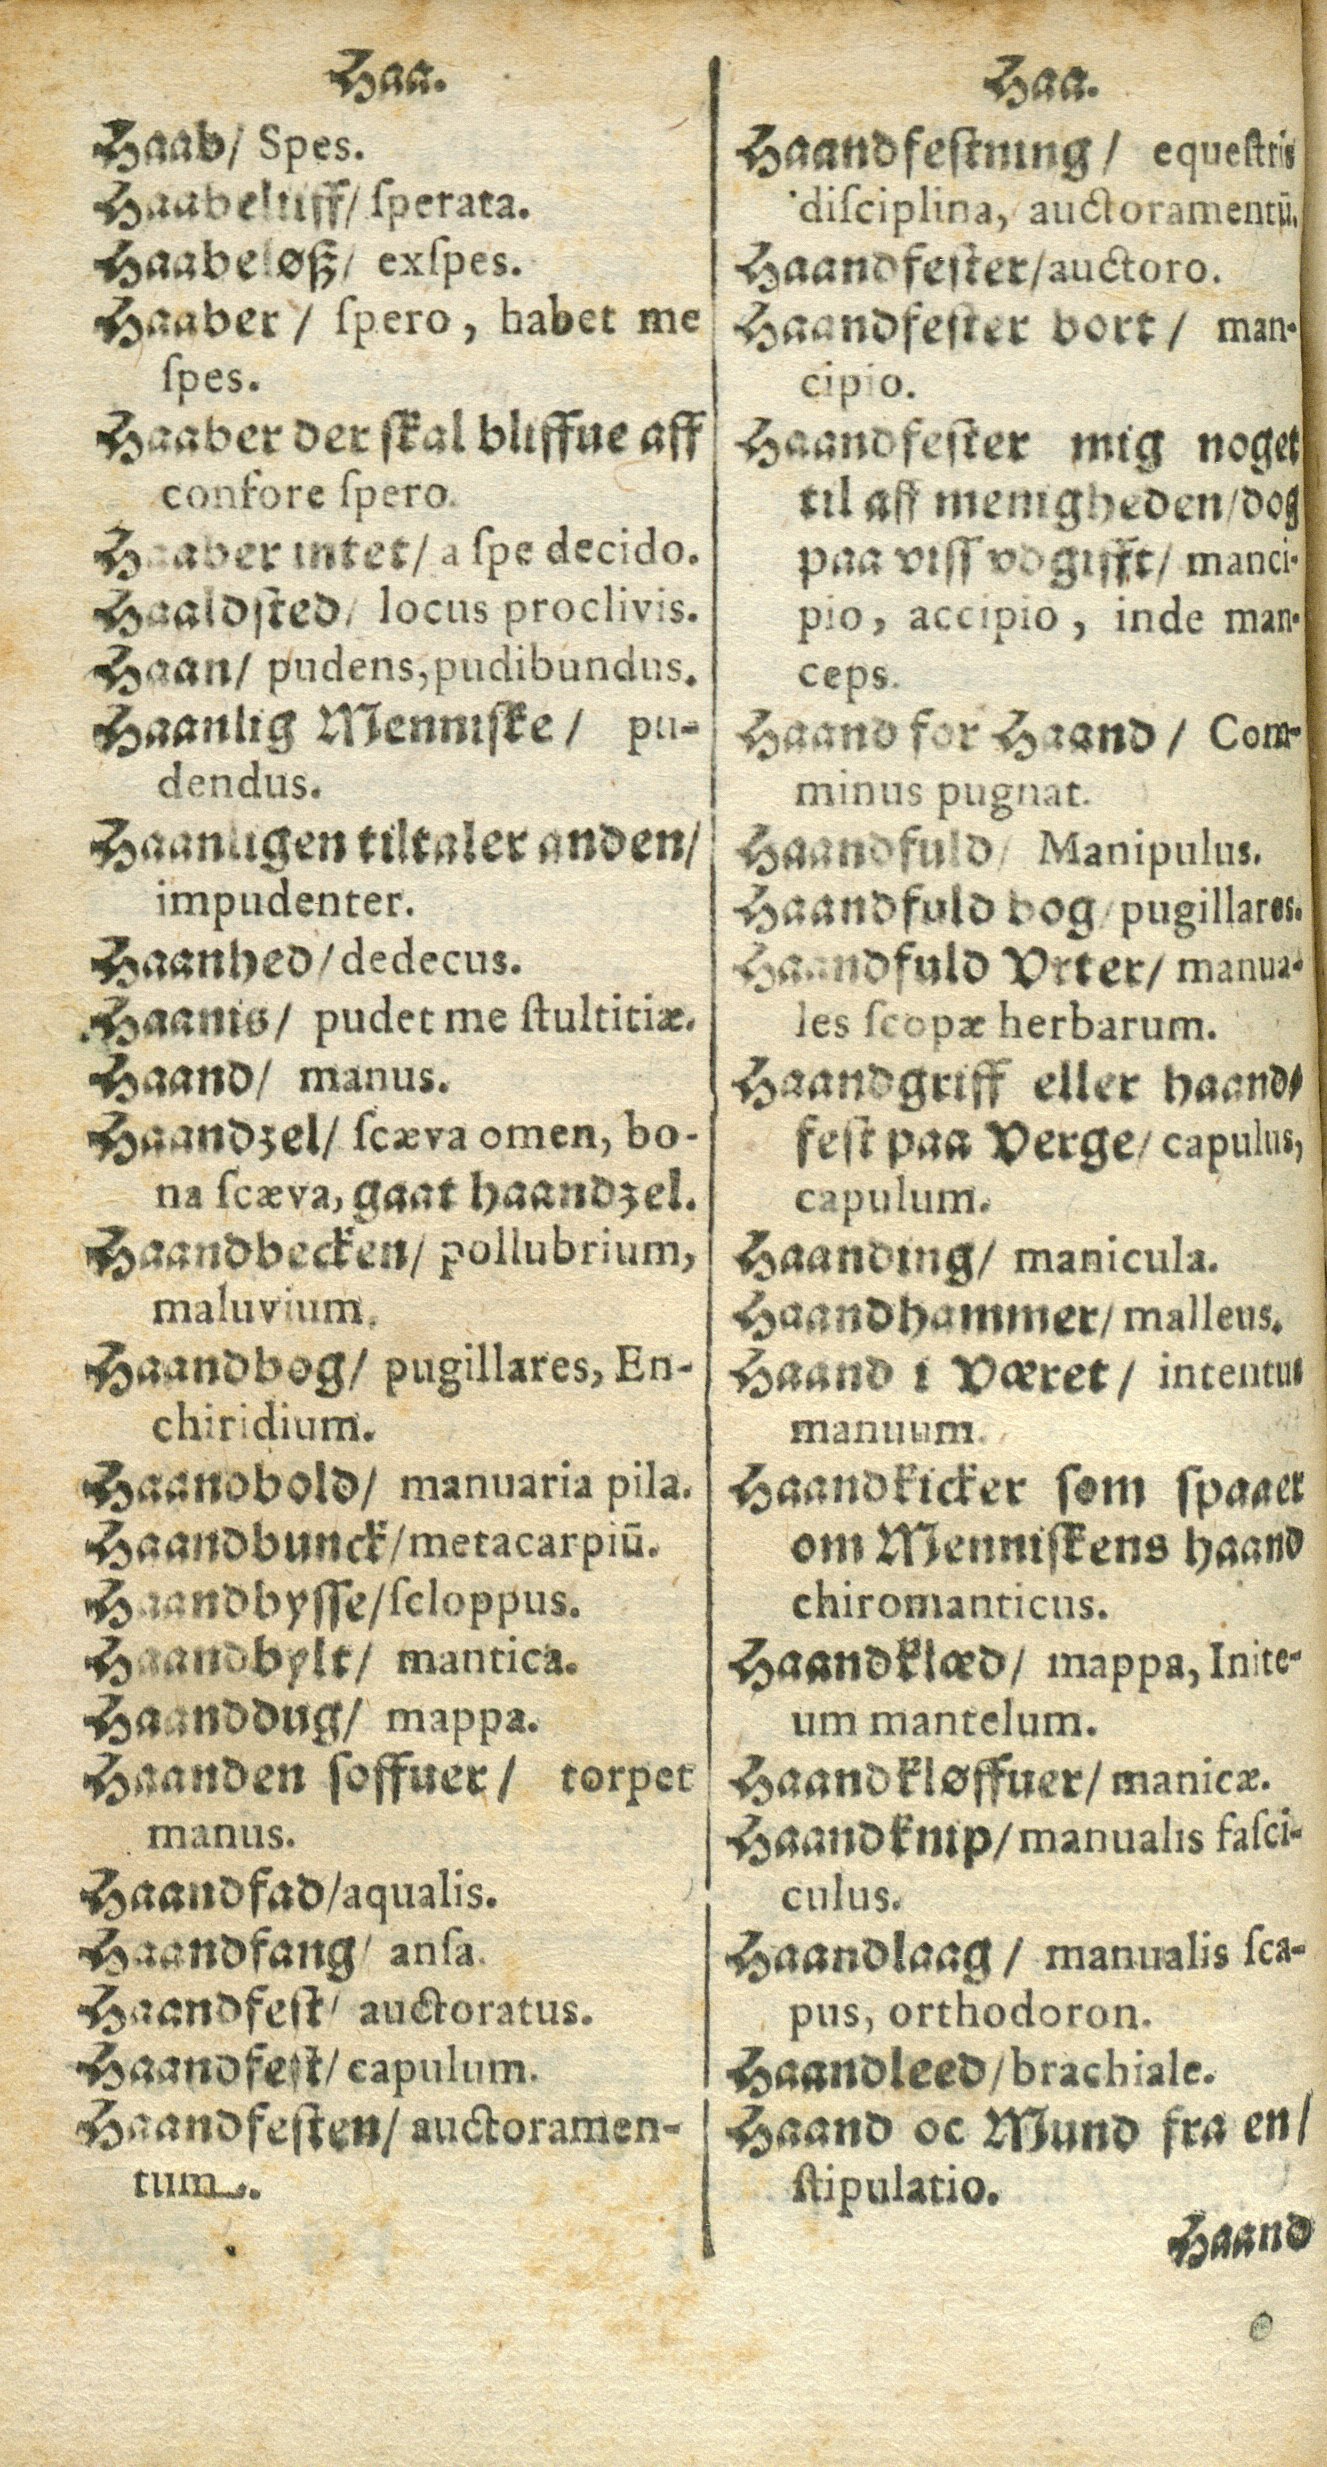 Haa.
Haab/ Spes.
Haabeluff/ ſperata.
Haabeløß/ exſpes.
Haaber/ ſpero, habet me
ſpes.
Haaber der ſkal bliffue aff
confore ſpero.
Haaber intet/ a ſpe decido.
Haaldſted/ locus proclivis.
Haan/ pudens, pudibundus.
Haanlig Menniſke/ pu-
dendus.
Haanligen tiltaler anden/
impudenter.
Haanhed/ dedecus.
Haanis/ pudet me ſtultitiæ.
Haand/ manus.
Haandzel/ ſcæva omen, bo-
na ſcæva, gaat haandzel.
Haandbecken/ pollubrium,
maluvium.
Haandbog/ pugillares, En-
chiridium.
Haandbold/ manuaria pila.
Haandbunck/ metacarpiū.
Haandbyſſe/ ſcloppus.
Haandbylt/ mantica.
Haanddug/ mappa.
Haanden ſoffuer/ torpet
manus.
Haandfad/ aqualis.
Haandfang/ anſa.
Haandfeſt/ auctoratus.
Haandfeſt/ capulum.
Haandfeſten/ auctoramen-
tum.
Haa.
Haandfeſtning/ equeſtris
diſciplina, auctoramentū.
Haandfeſter/ auctoro.
Haandfeſter bort/ man-
cipio.
Haandfeſter mig noget
til aff menigheden/ dog
paa viſſ vdgifft/ manci-
pio, accipio, inde man-
ceps.
Haand for Haand/ Com-
minus pugnat.
Haandfuld/ Manipulus.
Haandfuld bog/ pugillares.
Haandfuld Vrter/ manua-
les ſcopæ herbarum.
Haandgriff eller haand-
feſt paa Verge/ capulus,
capulum.
Haanding/ manicula.
Haandhammer/ malleus.
Haand i Været/ intentus
manuum.
Haandkicker ſom ſpaaer
om Menniſkens haand
chiromanticus.
Haandklæd/ mappa, Inite-
um mantelum.
Haandkløffuer/ manicæ.
Haandknip/ manualis faſci-
culus.
Haandlaag/ manualis ſca-
pus, orthodoron.
Haandleed/ brachiale.
Haand oc Mund fra en/
ſtipulatio.
Haand